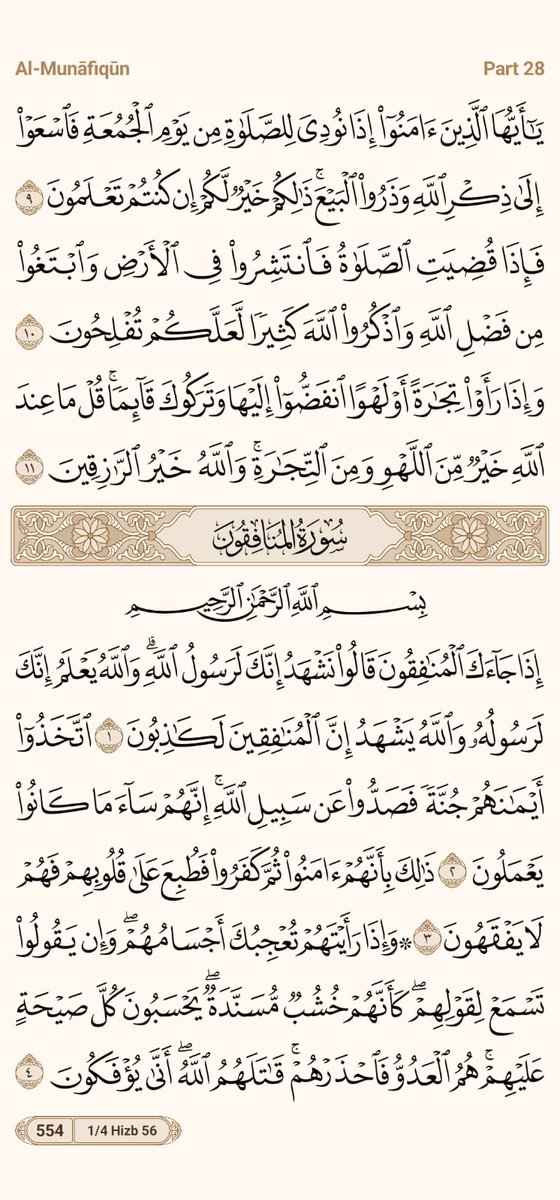 Al-Munāfiqūn Part 28
يَـٰٓأَيُّهَا ٱلَّذِينَ ءَامَنُوٓا۟ إِذَا نُودِىَ لِلصَّلَوٰةِ مِن يَوْمِ ٱلْجُمُعَةِ فَٱسْعَوْا۟
إِلَىٰ ذِكْرِ ٱللَّهِ وَذَرُوا۟ ٱلْبَيْعَ ۚ ذَٰلِكُمْ خَيْرٌ لَّكُمْ إِن كُنتُمْ تَعْلَمُونَ ٩
فَإِذَا قُضِيَتِ ٱلصَّلَوٰةُ فَٱنتَشِرُوا۟ فِى ٱلْأَرْضِ وَٱبْتَغُوا۟
مِن فَضْلِ ٱللَّهِ وَٱذْكُرُوا۟ ٱللَّهَ كَثِيرًا لَّعَلَّكُمْ تُفْلِحُونَ ١٠
وَإِذَا رَأَوْا۟ تِجَـٰرَةً أَوْ لَهْوًا ٱنفَضُّوٓا۟ إِلَيْهَا وَتَرَكُوكَ قَآئِمًا ۚ قُلْ مَا عِندَ
ٱللَّهِ خَيْرٌ مِّنَ ٱللَّهْوِ وَمِنَ ٱلتِّجَـٰرَةِ ۚ وَٱللَّهُ خَيْرُ ٱلرَّٰزِقِينَ ١١
سُورَةُ المُنَافِقُون
بِسْمِ ٱللَّهِ ٱلرَّحْمَـٰنِ ٱلرَّحِيمِ
إِذَا جَآءَكَ ٱلْمُنَـٰفِقُونَ قَالُوا۟ نَشْهَدُ إِنَّكَ لَرَسُولُ ٱللَّهِ ۗ وَٱللَّهُ يَعْلَمُ إِنَّكَ
لَرَسُولُهُۥ وَٱللَّهُ يَشْهَدُ إِنَّ ٱلْمُنَـٰفِقِينَ لَكَـٰذِبُونَ ١ ٱتَّخَذُوٓا۟
أَيْمَـٰنَهُمْ جُنَّةً فَصَدُّوا۟ عَن سَبِيلِ ٱللَّهِ ۚ إِنَّهُمْ سَآءَ مَا كَانُوا۟
يَعْمَلُونَ ٢ ذَٰلِكَ بِأَنَّهُمْ ءَامَنُوا۟ ثُمَّ كَفَرُوا۟ فَطُبِعَ عَلَىٰ قُلُوبِهِمْ فَهُمْ
لَا يَفْقَهُونَ ٣ ۞ وَإِذَا رَأَيْتَهُمْ تُعْجِبُكَ أَجْسَامُهُمْ ۖ وَإِن يَقُولُوا۟
تَسْمَعْ لِقَوْلِهِمْ ۖ كَأَنَّهُمْ خُشُبٌ مُّسَنَّدَةٌ ۖ يَحْسَبُونَ كُلَّ صَيْحَةٍ
عَلَيْهِمْ ۚ هُمُ ٱلْعَدُوُّ فَٱحْذَرْهُمْ ۚ قَـٰتَلَهُمُ ٱللَّهُ ۖ أَنَّىٰ يُؤْفَكُونَ ٤
554 1/4 Hizb 56